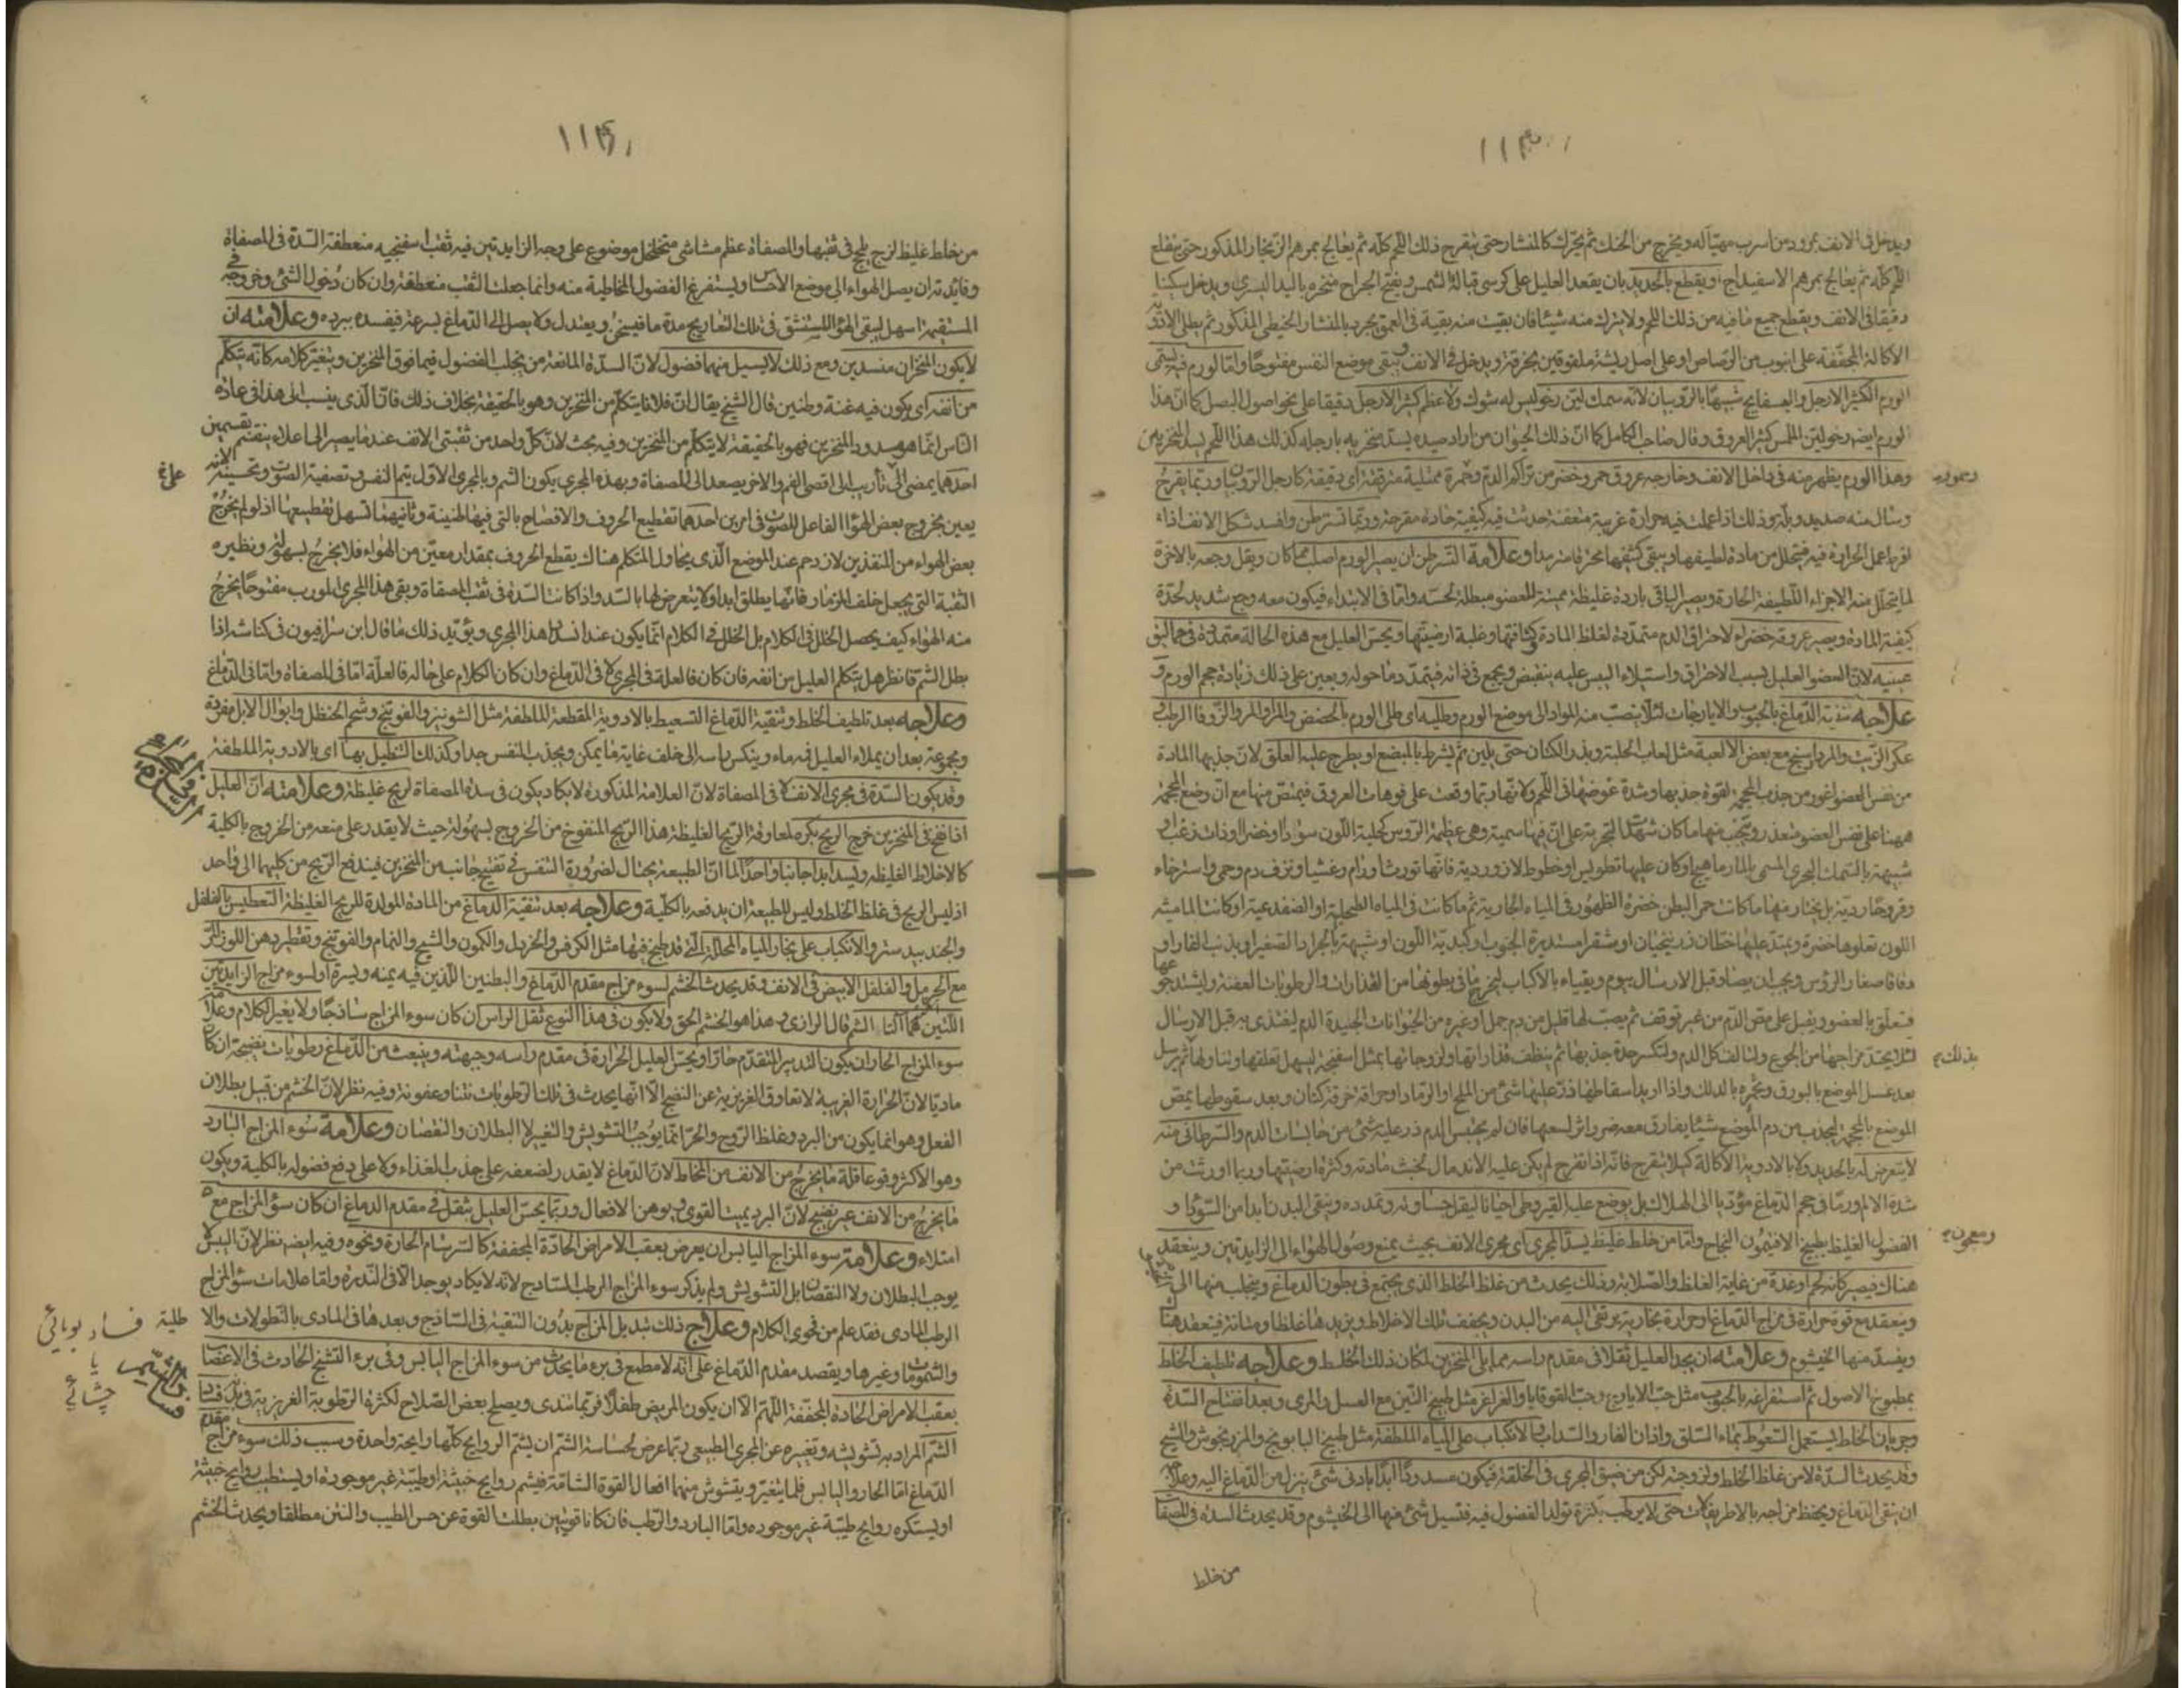 ويدخل فى الانف بمرود من اسرب مهيّأ له ويخرج من الحنك ثم يحرّك كالمنشار حتى يتقرح ذلك اللحم كله ثم يعالج بمرهم الزنجار المذكور حتى ينقلع
اللحم كله ثم يعالج بمرهم الاسفيداج او يقطع بالحديد بان يقعد العليل على كرسى قبالة الشمس ويفتح الجراح منخره باليد اليسرى ويدخل سكينا
دقيقا فى الانف ويقطع جميع ما فيه من ذلك اللحم ولا يترك منه شيئا فان بقيت منه بقية فى العمق يجرد بالمنشار الخيطى المذكور ثم يطلى الادوية
الاكالة المجففة على انبوب من الرصاص او على اصل ريشة ملفوفين بخرقة ويدخل فى الانف ويبقى موضع النفس مفتوحا واما الورم فيه يسمى
الورم الكثير الارجل والبسفايج شبيها بالروبيان لانه سمك لين رخو ليس له شوك ولا عظم كثير الارجل دقيقا على نحو اصول البصل كما ان هذا
الورم ايضا رخو لين الملمس كثير العروق وقال صاحب الكامل كما ان ذلك الحيوان من اراد صيده يسد منخريه بارجله كذلك هذا اللحم يسد المنخرين
وهذا الورم يظهر منه فى داخل الانف وخارجه عروق حمر وخضر من تراكم الدم وحمرة ممتلية متفرقة اى دقيقة كارجل الروبيان وربما يقرح
وسال منه صديد وبلة وذلك اذا عملت فيه حرارة غريبة متعفنة حدثت فيه كيفية حادة مقرحة وربما تسرطن وافسد شكل الانف اذا
افرط عمل الحرارة فيه فيتحلل من مادة لطيفها ويبقى كثيفها محترقا مترمدا وعلامة التسرطن ان يصير الورم اصلب مما كان ويقل وجعه بالاخرة
لما يتحلل منه الاجزاء اللطيفة الحارة ويصير الباقى باردة غليظة مميتة للعضو مبطلة لحسه واما فى الابتداء فيكون معه وجع شديد لحدة
كيفية المادة ويصير عروقه خضراء لاحتراق الدم متمددة لغلظ المادة وكثافتها وغلبة ارضيتها ويحس العليل مع هذه الحالة متمددة فى حمالق
عينيه لان العضو العليل بسبب الاحتراق واستيلاء اليبس عليه ينقبض ويجمع فى ذاته فيتمدد ما حوله ويعين على ذلك زيادة حجم الورم و
علاجه تنقية الدماغ بالحبوب والايارجات لئلا ينصب منه المواد الى موضع الورم وطليه اى طلى الورم بالحضض والمر او المر والزوفا الرطب و
عكر الزيت والمرداسنج مع بعض الالعبة مثل لعاب الحلبة وبذر الكتان حتى يلين ثم يشرط بالمبضع او يطرح عليه العلق لان جذبها المادة
من نفس العضو اغور من جذب المحجمة لقوة جذبها وشدة غوصها فى اللحم ولانها ربما وقعت على فوهات العروق فيمتص منها مع ان وضع المحجمة
ههنا على نفس العضو متعذر ويجتنب منها ما كان شهدت التجربة على ان فيها سمية وهى عظيمة الرؤس كحلية اللون سودا وخضرا وذات زغب او
شبيهة بالسمك البحرى المسمى بالمارماهيج او كان عليها تطويس او خطوط لازوردية فانها تورث اوراما وغشيا ونزف دم وحمى واسترخاء
وقروحا ردية بل يختار منها ما كانت حمر البطن خضرة الظهور فى المياه الجارية ثم ما كانت فى المياه الطحلبية او الضفدعية او كانت الماشية
اللون تعلوها خضرة ويمتد عليها خطان زرنيخيان او مشقرا مستديرة الجنوب او كبدية اللون او شبيهة بالجراد الصغير او بذنب الفار او
دقاقا صغار الرؤس ويجب ان يصاد قبل الارسال بيوم ويقياء بالاكباب ليخرج ما فى بطونها من القذارات والرطوبات العفنة وليشتد جوعها
فتعلق بالعضو ويقبل على مص الدم من غير توقف ثم يصب لها قليل من دم حمل او غيره من الحيوانات الجيدة الدم ليغتذى به قبل الارسال
لئلا يحتد مزاجها من الجوع ولتالف كل الدم ولتكسر حدة جذبها ثم ينظف قذاراتها ولزوجاتها بمثل اسفنجة ليسهل تعلقها وتناولها ثم يرسل
بعد غسل الموضع بالبورق وتحمره بالدلك واذا اريد اسقاطها ذر عليها شئ من الملح او الرماد او حراقة خرقة كتان وبعد سقوطها يمص
الموضع بالمحجمة ليجذب من دم الموضع شيئا يفارق معه ضر واثر لسعها فان لم يحتبس الدم ذر عليه شئ من حابسات الدم والسرطانى منه
لا يتعرض له بالحديد ولا بالادوية الاكالة كيلا يتقرح فانه اذا تقرح لم يكن عليه الاندمال لخبث مادته وكثرة ارضيتها وربما اورثت من
شدة الالم ورما فى حجم الدماغ مؤديا الى الهلاك بل يوضع عليه القيروطى احيانا ليقل جساوته وتمدده وينقى البدن ابدا من السودا و
الفضول الغليظ بطبيخ الافتيمون النجاح واما من خلط غليظ يسد المجرى اى مجرى الانف بحيث يمنع وصول الهواء الى الزايدتين وينعقد
هناك فيصير كانه لحم او غدة من غاية الغلظ والصلابة وذلك يحدث من غلظ الخلط الذى يجتمع فى بطون الدماغ وينجلب منها الى
وينعقد مع قوة حرارة فى مزاج الدماغ او حرارة بخارية يرتقى اليه من البدن ويجفف تلك الاخلاط ويزيدها غلظا ومتانة فينعقد هناك
ويفسد منها الخيشوم وعلامته ان يجد العليل ثقلا فى مقدم راسه مما يلى المنخرين لمكان ذلك الخلط وعلاجه تلطيف الخلط
بمطبوخ الاصول ثم استفراغه بالحبوب مثل حب الايارج وحب القوقايا والغراغر مثل طبيخ التين مع العسل والمرى وبعد افتتاح السدة
وجريان الخلط يستعمل السعوط بماء السلق واذان الفار والسداب والانكباب على المياه الملطفة مثل طبيخ البابونج والمرزنجوش والشيح
وقد يحدث السدة لا من غلظ الخلط ولزوجته لكن من ضيق المجرى فى الخلقة فيكون مسدودا ابدا بادنى شئ ينزل من الدماغ اليه وعلاجه
ان ينقى الدماغ ويحفظ مزاجه بالاطريفلات حتى لا يرطب بكثرة تولد الفضول فيه فتسيل شئ منها الى الخيشوم وقد يحدث السدة فى المصفاة
من خلط
من خلط غليظ لزج يلحج فى ثقبها والمصفاة عظم مشاشى متخلخل موضوع على وجه الزايدتين فيه ثقب اسفنجيه منعطفة السدة فى المصفاة
وفائدته ان يصل الهواء الى موضع الاحساس ويستفرغ الفضول المخاطية منه وانما جعلت الثقب منعطفة وان كان دخول الشئ وخروجه فى
المستقيمة اسهل ليبقى الهواء المستنشق فى تلك التعاريج مدة ما فيسخن ويعتدل ولا يصل الى الدماغ بسرعة فيفسده ببرده وعلامته ان
لا يكون المنخران منسدين ومع ذلك لا يسيل منهما فضول لان السدة المانعة من تجلب الفضول فيما فوق المنخرين ويتغير كلامه كانه يتكلم
من انفه اى يكون فيه غنة وطنين قال الشيخ يقال ان فلانا يتكلم من المنخرين وهو بالحقيقة بخلاف ذلك فان الذى ينسب الى هذا فى عادة
الناس انما هو مسدود المنخرين فهو بالحقيقة لا يتكلم من المنخرين وفيه بحث لان كل واحد من ثقبتى الانف عندما يصير الى اعلاه ينقسم تقسيمين
احدهما يمضى الى تأريب الى اقصى الفم والاخر يصعد الى المصفاة وبهذه المجرى يكون الشم وبالمجرى الاول يتم النفس وتصفية الصوت وتحسينه لانه
يعين بخروج بعض الهواء الفاعل للصوت فى امرين احدهما تقطيع الحروف والافصاح بالتى فيها طنينة وثانيهما تسهل تقطيعها اذ لو لم يخرج
بعض الهواء من المنفذين لازدحم عند الموضع الذى يحاول المتكلم هناك يقطع الحروف بمقدار معين من الهواء فلا يخرج بسهولة ونظيره
الثقبة التى يجعل خلف المزمار فانها يطلق ابدا ولا يتعرض لها بالسد واذا كانت السدة فى ثقب المصفاة وبقى هذا المجرى المورب مفتوحا يخرج
منه الهواء كيف يحصل الخلل فى الكلام بل الخلل فى الكلام انما يكون عند انسداد هذا المجرى ويؤيد ذلك ما قال ابن سرافيون فى كناشه اذا
بطل الشم فانظر هل يتكلم العليل من انفه فان كان فالعلة فى المجرى لا فى الدماغ وان كان الكلام على حاله فالعلة اما فى المصفاة واما فى الدماغ
وعلاجه بعد تلطيف الخلط وتنقية الدماغ التسعيط بالادوية المقطعة الملطفة مثل الشونيز والفوتنج وشحم الحنظل وابوال الابل مفردة
ومجموعة بعد ان يملاء العليل فمه ماء وينكس راسه الى خلف غاية ما يمكن ويجذب النفس جدا وكذلك التنطيل بها اى بالادوية الملطفة
وقد يكون السدة فى مجرى الانف لا فى المصفاة لان العلامة المذكورة لا يكاد يكون فى سدة المصفاة لريح غليظة وعلامته ان العليل
اذا نفخ فى المنخرين خرج الريح بكره لمعاوقة الريح الغليظة هذا الريح المنفوخ من الخروج بسهولة حيث لا يقدر على منعه من الخروج بالكلية
كالاخلاط الغليظة ويسد ابدا جانبا واحدا لما ان الطبيعة يحتال لضرورة التنفس فى تفتيح جانب من المنخرين فيندفع الريح من كليهما الى واحد
اذ ليس الريح فى غلظ الخلط وليس للطبيعة ان يدفعه بالكلية وعلاجه بعد تنقية الدماغ من المادة المولدة للريح الغليظة التعطيس بالفلفل
والجندبيدستر والانكباب على بخار المياه المحللة التى قد طبخ فيها مثل الكرفس والخردل والكمون والشيح والنمام والفوتنج وتقطير دهن اللوز المر
مع الحرمل والفلفل الابيض فى الانف وقد يحدث الخشم لسوء مزاج مقدم الدماغ والبطنين اللذين فيه يمنه ويسرة او لسوء مزاج الزايدتين
اللتين هما آلتا الشم قال الرازى وهذا هو الخشم الحق ولا يكون فى هذا النوع ثقل الراس ان كان سوء المزاج ساذجا ولا يغير الكلام وعلامة
سوء المزاج الحار ان يكون التدبير المتقدم حارا ويحس العليل الحرارة فى مقدم راسه وجبهته وينبعث من الدماغ رطوبات نضيجة ان كان
ماديا لان الحرارة الغريبة لا تعاوق الغريزية عن النضج الا انها يحدث فى تلك الرطوبات نتنا وعفونة وفيه نظر لان الخشم من قبل بطلان
الفعل وهو انما يكون من البرد وغلظ الروح والحر انما يوجب التشويش والتغير لا البطلان والنقصان وعلامة سوء المزاج البارد
وهو الاكثر وقوعا قلة ما يخرج من الانف من المخاط لان الدماغ لا يقدر لضعفه على جذب الغذاء ولا على دفع فضوله بالكلية ويكون
ما يخرج من الانف غير نضيج لان البرد يميت القوى ويوهن الافعال وربما يحس العليل بثقل فى مقدم الدماغ ان كان سوء المزاج مع
امتلاء وعلامة سوء المزاج اليابس ان يعرض بعقب الامراض الحادة المجففة كالسرسام الحارة ونحوه وفيه ايضا نظر لان اليبس لا
يوجب البطلان ولا النقصان بل التشويش ولم يذكر سوء المزاج الرطب الساذج لانه لا يكاد يوجد الا فى الندرة واما علامات سوء المزاج
الرطب المادى فقد علم من فحوى الكلام وعلاج ذلك تبديل المزاج بدون التنقية فى الساذج وبعدها فى المادى بالنطولات والا
طلية والشمومات وغيرها ويقصد مقدم الدماغ على انه لا مطمع فى برء ما يحدث من سوء المزاج اليابس وفى برء التشنج الحادث فى الاعضا
بعقب الامراض الحادة المجففة اللهم الا ان يكون المريض طفلا فربما تندى ويصلح بعض الصلاح لكثرة الرطوبة الغريزية فى بدنه فساد
الشم المراد به تشويشه وتغيره عن المجرى الطبيعى ربما عرض لحساسة الشم ان يشم الروايح كلها رايحة واحدة وسبب ذلك سوء مزاج مقدم
الدماغ اما الحار واليابس فلما يتغير ويتشوش منهما افعال القوة الشامة فيشم روايح خبيثة او طيبة غير موجودة او يستطيب روايح خبيثة
او يستكره روايح طيبة غير موجوده واما البارد والرطب فان كانا قويين بطلت القوة عن حس الطيب والنتن مطلقا ويحدث الخشم
فساد بويائى
يا
فساد الشم